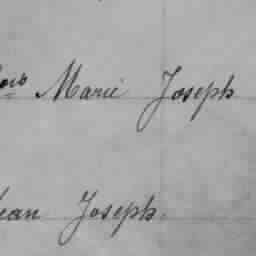 Marie Joseph
Jean Joseph.